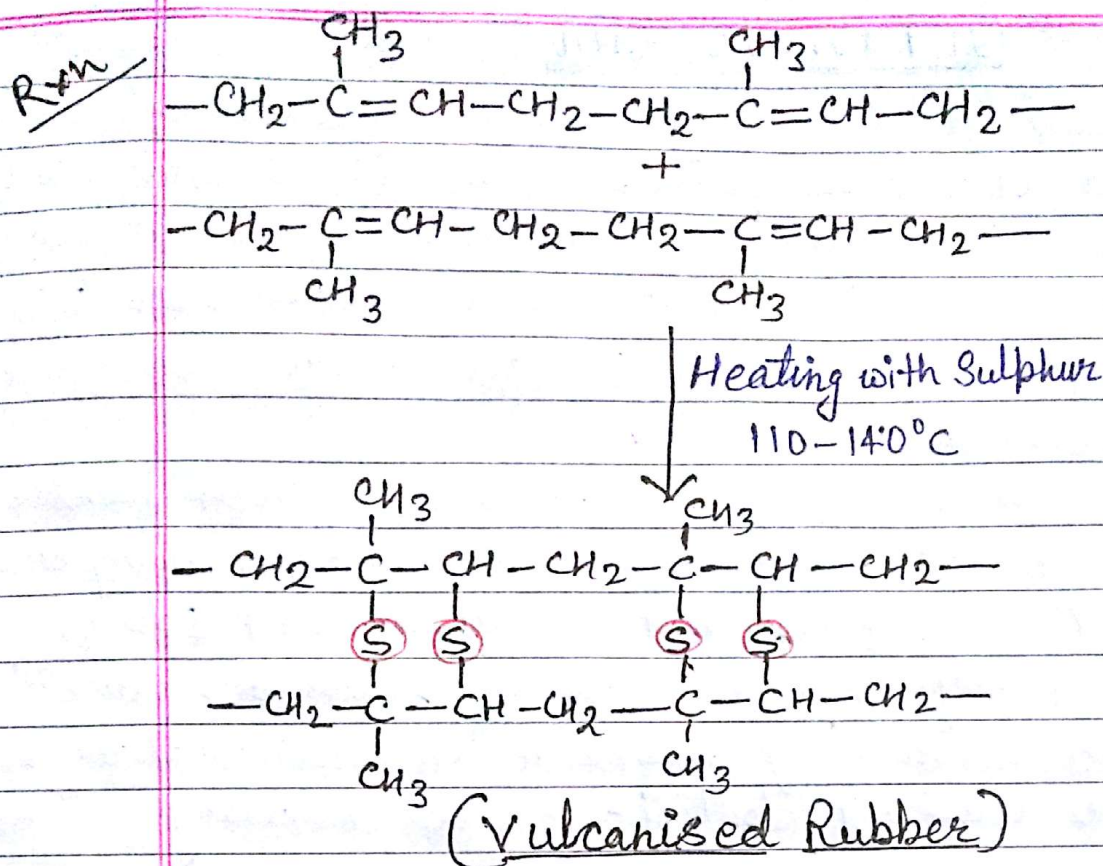 Rxn
CH3 CH3
—CH2—C=CH—CH2—CH2—C=CH—CH2—
+
—CH2—C=CH—CH2—CH2—C=CH—CH2—
CH3 CH3
Heating with Sulphur
110-140°C
CH3 CH3
—CH2—C—CH—CH2—C—CH—CH2—
S S S S
—CH2—C—CH—CH2—C—CH—CH2—
CH3 CH3
(Vulcanised Rubber)